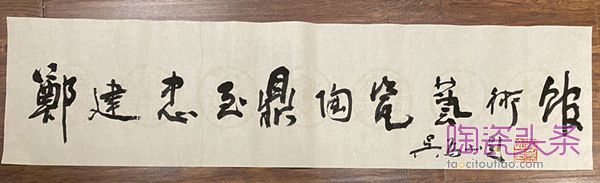 鄭建忠至鼎陶瓷藝術館
吴为山题
陶瓷头条
taocitoutiao.com